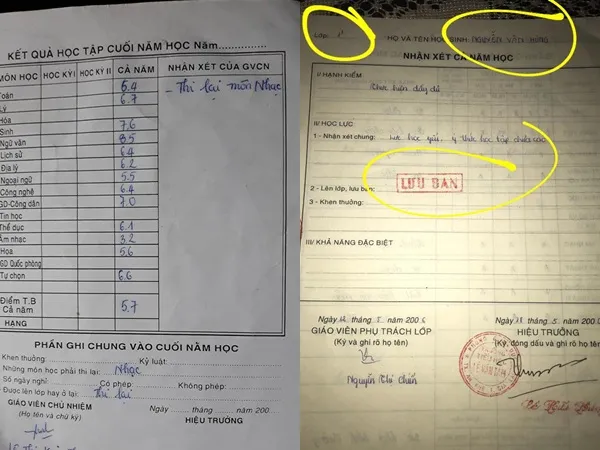 KẾT QUẢ HỌC TẬP CUỐI NĂM HỌC Năm...............
MÔN HỌC HỌC KỲ I HỌC KỲ II CẢ NĂM NHẬN XÉT CỦA GVCN
Toán 6.4 - Thi lại môn Nhạc
Lý 6.7
Hóa
Sinh 7.6
Ngữ văn
Lịch sử 6.4
Địa lý 6.2
Ngoại ngữ 5.5
Công nghệ 6.4
GD-Công dân 7.0
Tin học
Thể dục 6.1
Âm nhạc 3.2
Họa 5.6
GD Quốc phòng
Tự chọn 6.6
Điểm T.B
Cả năm 5.7
HẠNG
PHẦN GHI CHUNG VÀO CUỐI NĂM HỌC
Khen thưởng: Kỷ luật:
Những môn học phải thi lại: Nhạc
Số ngày nghỉ: Có phép: Không phép:
Được lên lớp hay ở lại: Thi lại
Ngày......tháng......năm 200
GIÁO VIÊN CHỦ NHIỆM HIỆU TRƯỞNG
(Họ tên và chữ ký)
Lớp: HỌ VÀ TÊN HỌC SINH NGUYỄN VĂN HÙNG
NHẬN XÉT CẢ NĂM HỌC
I/ HẠNH KIỂM
Thực hiện đầy đủ
II/ HỌC LỰC
1 - Nhận xét chung: Lực học yếu - ý thức học tập chưa cao
2 - Lên lớp, lưu ban: LƯU BAN
3 - Khen thưởng:
III/ KHẢ NĂNG ĐẶC BIỆT
Ngày tháng 5 năm 2006 Ngày tháng 5 năm 2006
GIÁO VIÊN PHỤ TRÁCH LỚP HIỆU TRƯỞNG
(Ký và ghi rõ họ tên) (Ký, đóng dấu và ghi rõ họ tên)
Nguyễn Thị Chiến